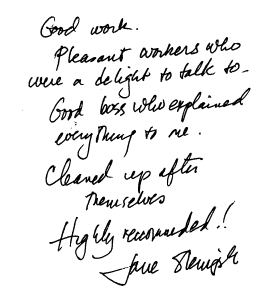 Good work.
Pleasant workers who
were a delight to talk to -
Good boss who explained
everything to me.
Cleaned up after
themselves
Highly recommended!!
Jane